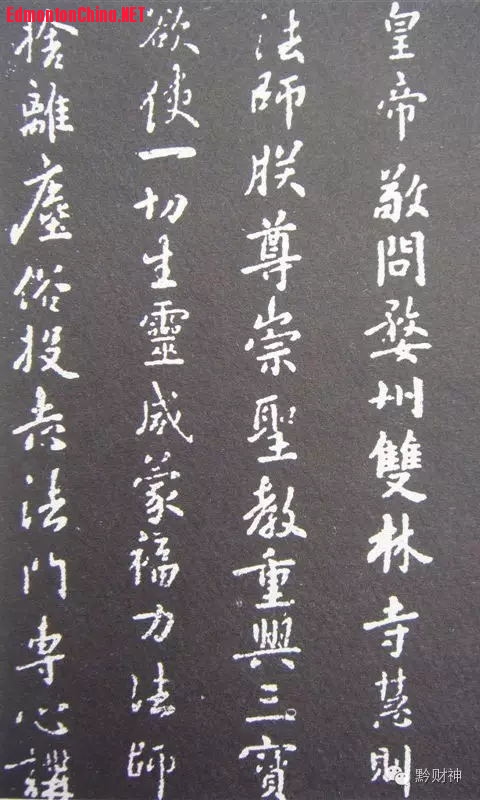 皇帝敬問婺州雙林寺慧則
法師朕尊崇聖教重興三寶
欲使一切生靈咸蒙福力法師
捨離塵俗投志法門專心講
EdmontonChina.NET
黔财神